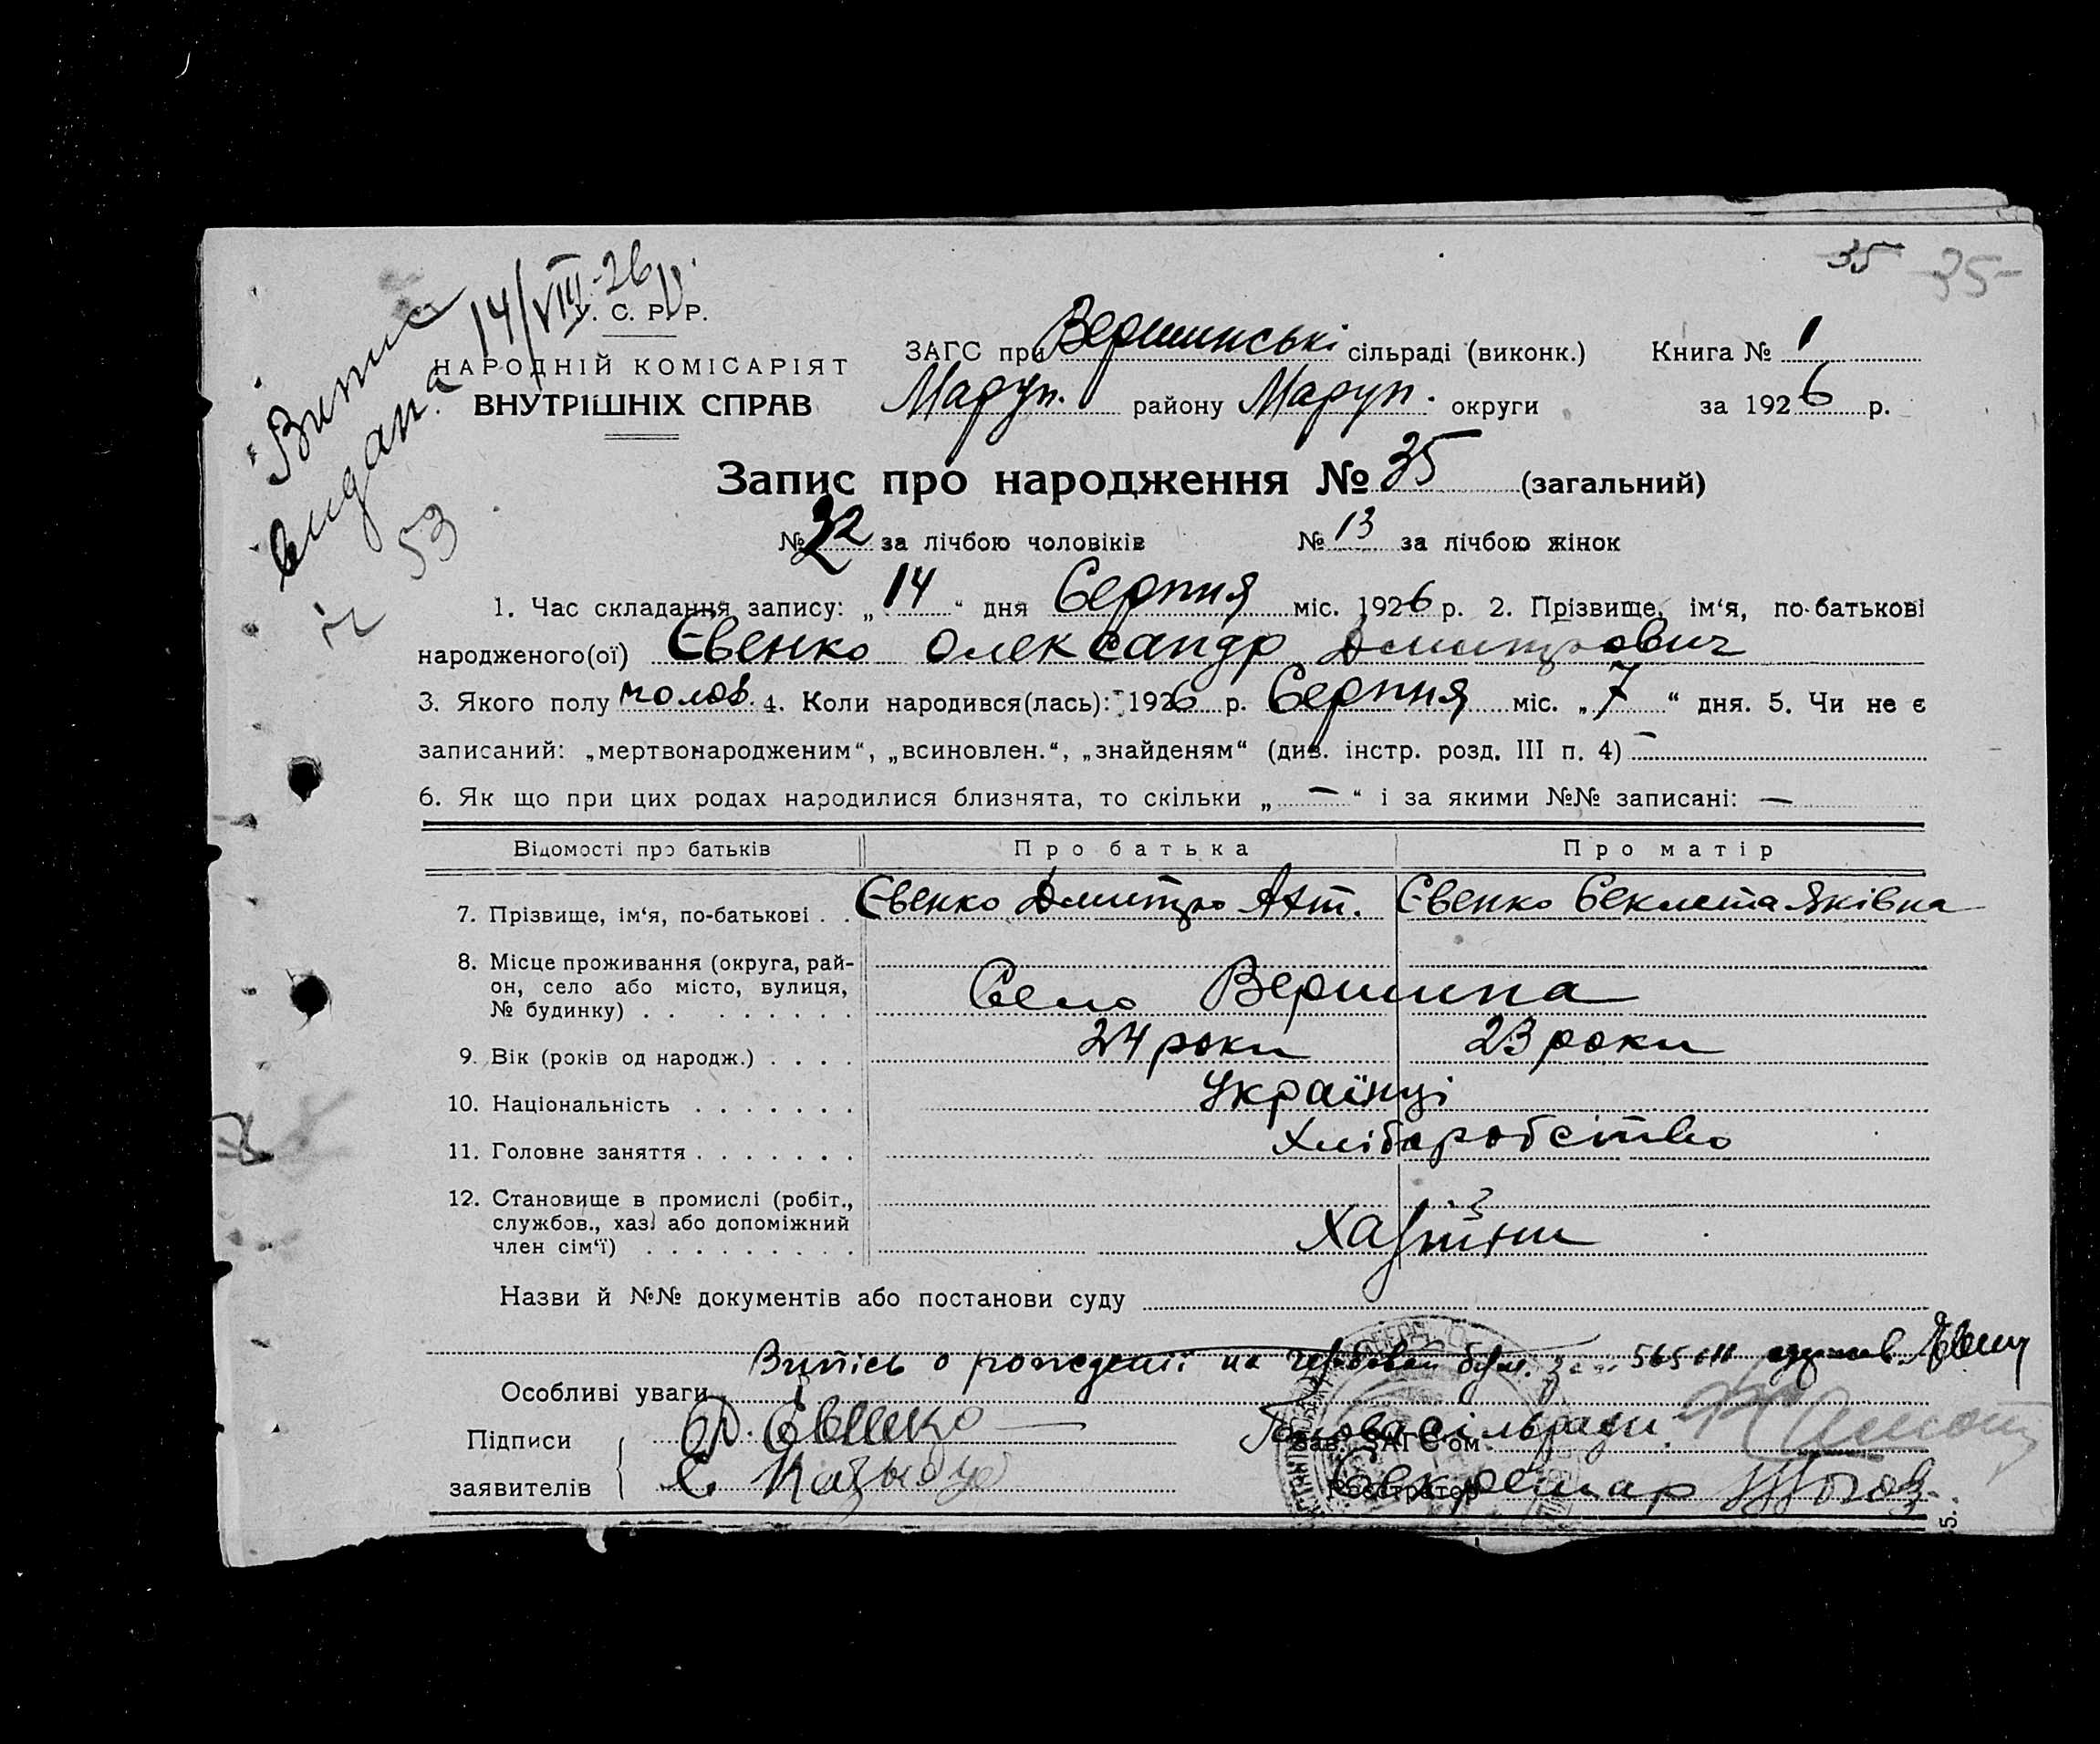 35 35
14/VIII-26 р.
У. С. Р. Р.
НАРОДНІЙ КОМІСАРІЯТ
ВНУТРІШНІХ СПРАВ
Випис
видана
53
ЗАГС при Вершинські сільраді (виконк.) Книга № 1
Маруп. району Маруп. округи за 1926 р.
Запис про народження № 35 (загальний)
№ 22 за лічбою чоловіків № 13 за лічбою жінок
1. Час складання запису: „14“ дня Серпня міс. 1926 р. 2. Прізвище, ім‘я, по-батькові
народженого(ої) Євенко Олександр Дмитрович
3. Якого полу чолов. 4. Коли народився(лась): 1926 р. Серпня міс. „7“ дня. 5. Чи не є
записаний: „мертвонародженим“, „всиновлен.“, „знайденям“ (див. інстр. розд. III п. 4) —
6. Як що при цих родах народилися близнята, то скільки „—“ і за якими №№ записані: —
Відомості про батьків Про батька Про матір
7. Прізвище, ім‘я, по-батькові . . Євенко Дмитро Ант. Євенко Секлета Яківна
8. Місце проживання (округа, рай-
он, село або місто, вулиця,
№ будинку) . . . . . . . . Село Вершина
9. Вік (років од народж.) . . . . 24 роки 23 роки
10. Національність . . . . . . . Українці
11. Головне заняття . . . . . . . Хліборобство
12. Становище в промислі (робіт.,
службов., хаз. або допоміжний
член сім‘ї) . . . . . . . . .
Назви й №№ документів або постанови суду
Витісь о рождении на гербовой бум. за 565
Особливі уваги
Підписи Д. Евенко Голова сільради
Зав. ЗАГС‘ом
заявителів Секретар
Реєстратор
5.